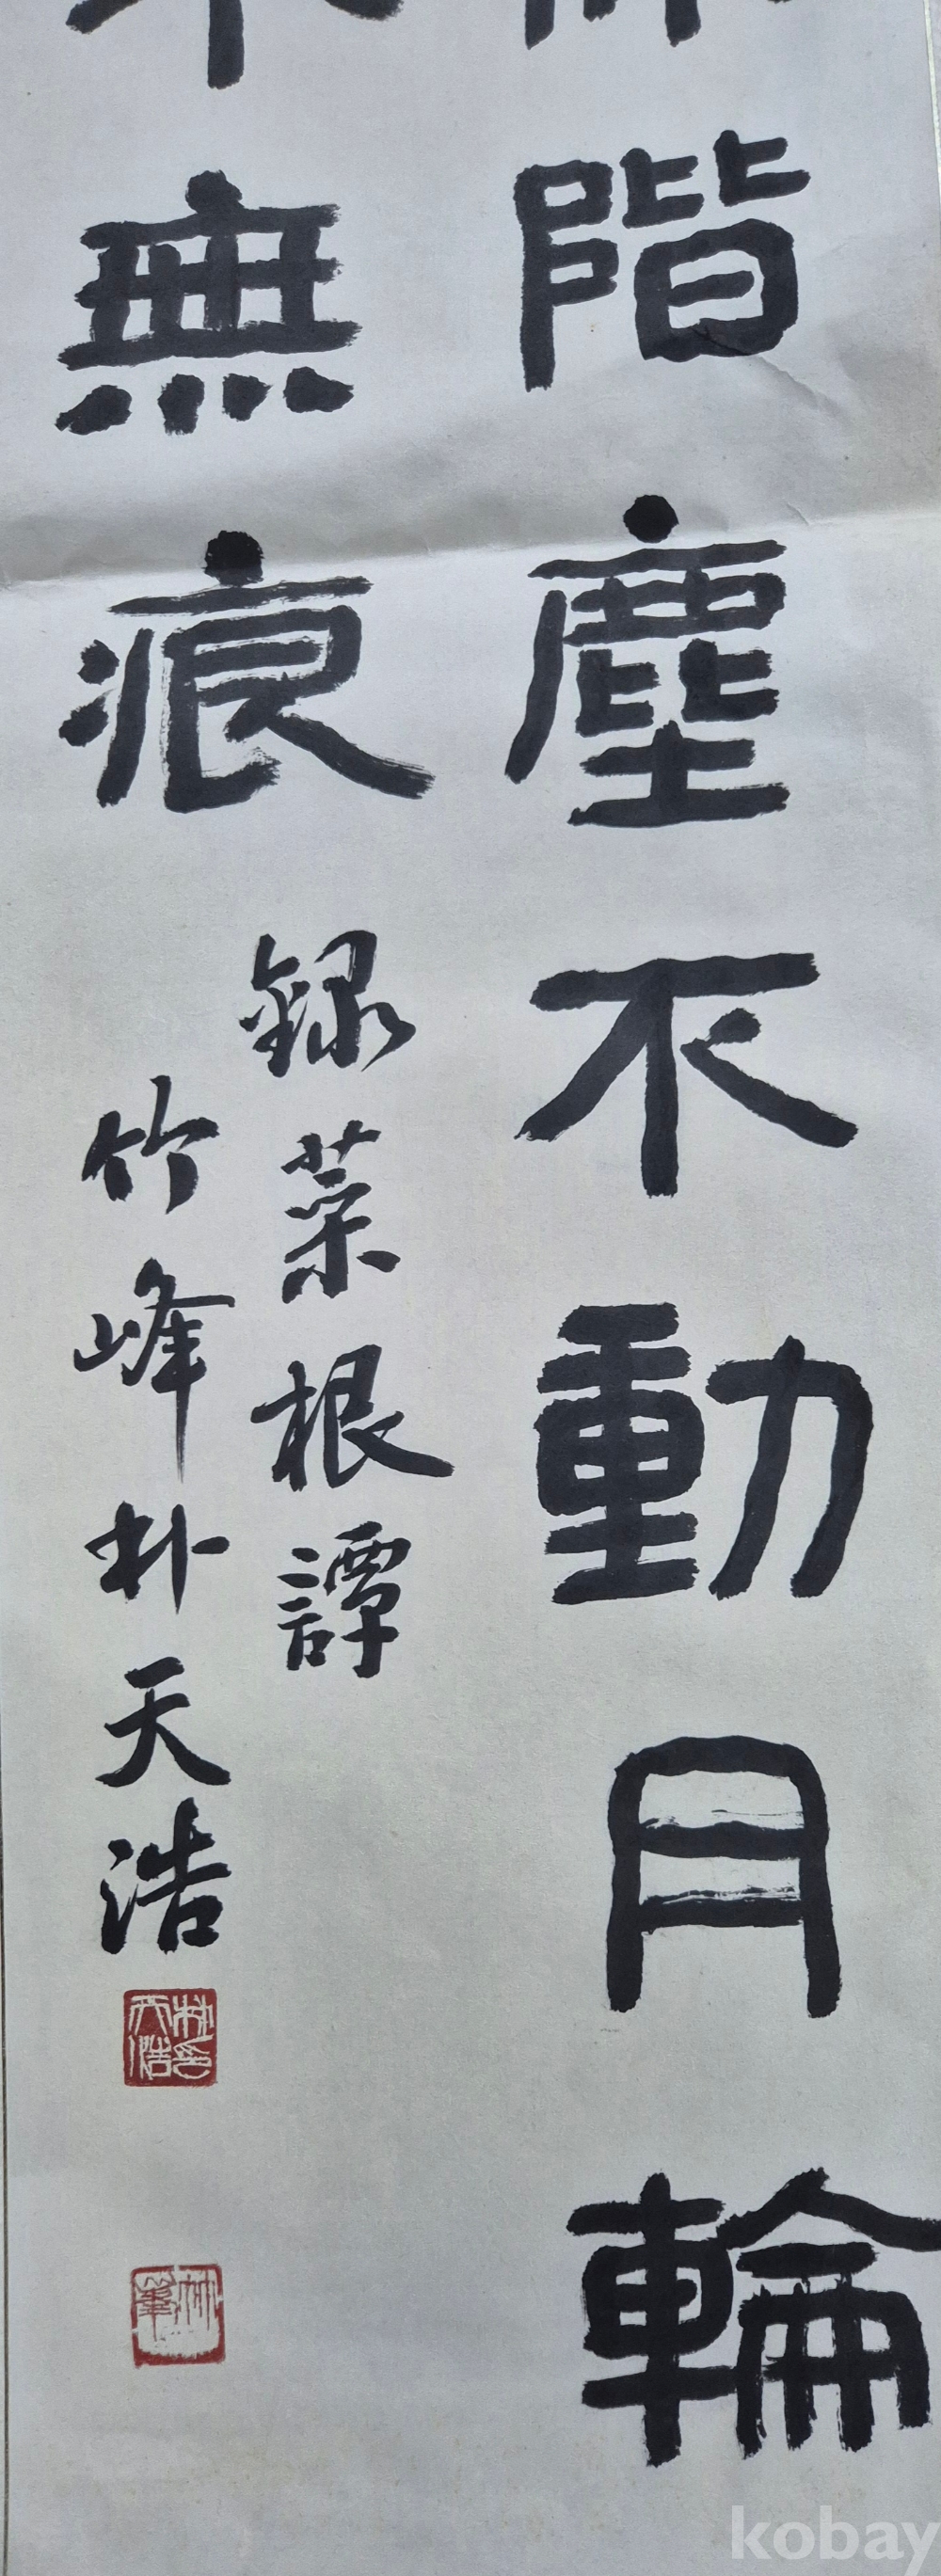 階塵不動月輪
無痕
録菜根譚
竹峰朴天浩
朴天浩印
kobay